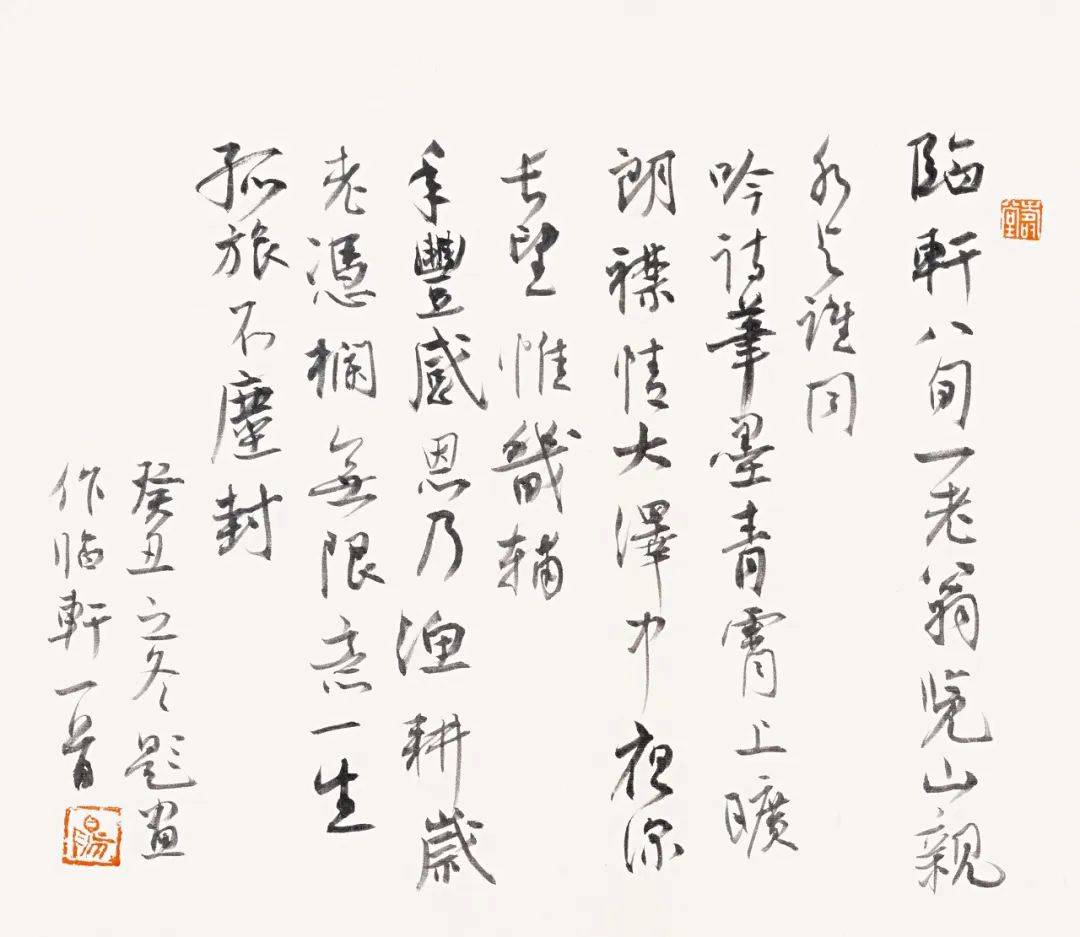 臨軒八旬一老翁览山親
水与誰同
吟詩筆墨青霄上曠
朗襟情大澤中夜深
長望惟畿輔
年豐感恩乃漁耕歲
老憑欄無限意一生
孤旅不塵封
癸丑之冬題畫
作臨軒一首
陽